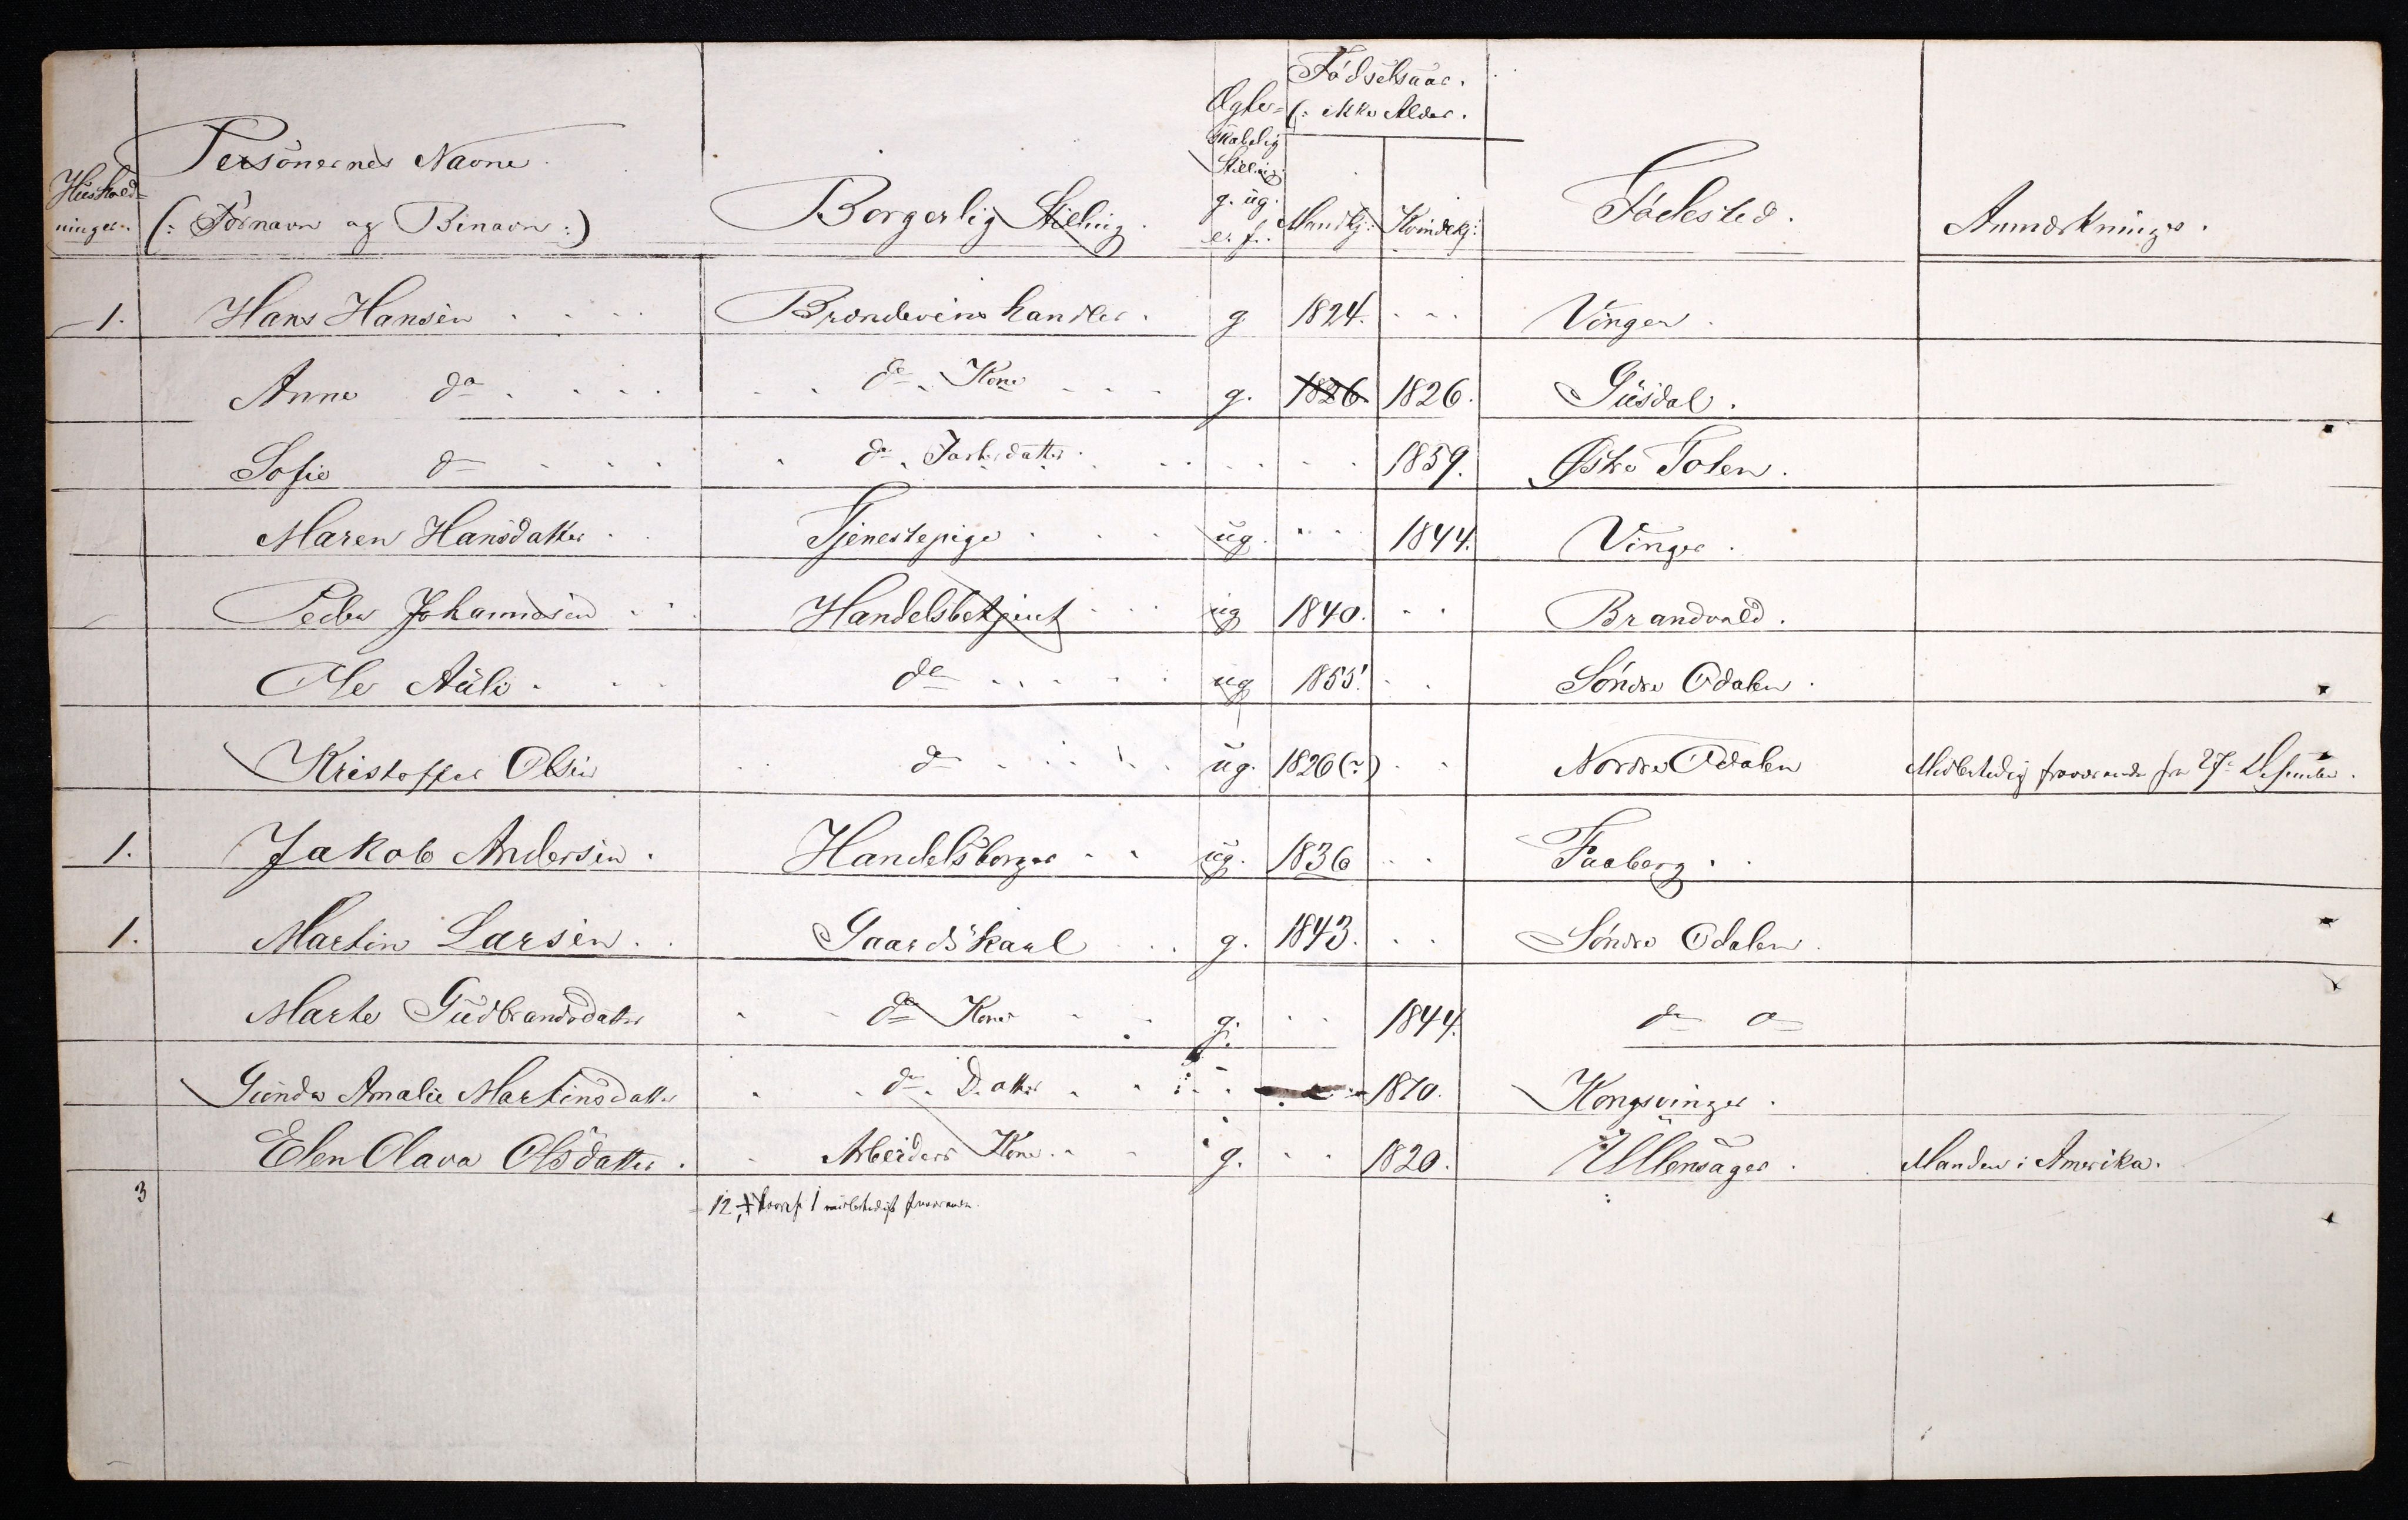 Fødselsaar.
Ægte- (: ikke Alder.
skabelig
Personernes Navne Stilling
Hushold- g. ug.
ninger. (: Fornavn og Binavn :) Borgerlig Stilling. e. f. Mandkj: Kvindekj: Fødested. Anmærkninger.
1. Hans Hansen Brændevinshandler. g 1824. Vinger.
Anne do do. Kone g. 1826 1826. Gusdal.
Sofie do do. Fosterdatter. 1859. Østre Toten.
Maren Hansdatter Tjenestepige ug. 1844. Vinger.
Peder Johannesen Handelsbetjent ug 1840. Brandvald.
Ole Auli do ug 1855. Søndre Odalen.
Kristoffer Olsen do ug. 1826 (?) Nordre Odalen Midlertidig fraværende fra 27de Desember.
1. Jakob Andersen. Handelsborger ug. 1836 Faaberg.
1. Martin Larsen. Gaardskarl g. 1843. Søndre Odalen.
Marte Gudbrandsdatter do Kone g. 1844. do do
Gunda Amalie Martinsdatter do. Datter 1870. Kongsvinger.
Elen Olava Olsdatter. Arbeiders Kone. g. 1820. Ullensager. Manden i Amerika.
3 12, hvoraf 1 midlertidigt fraværende.